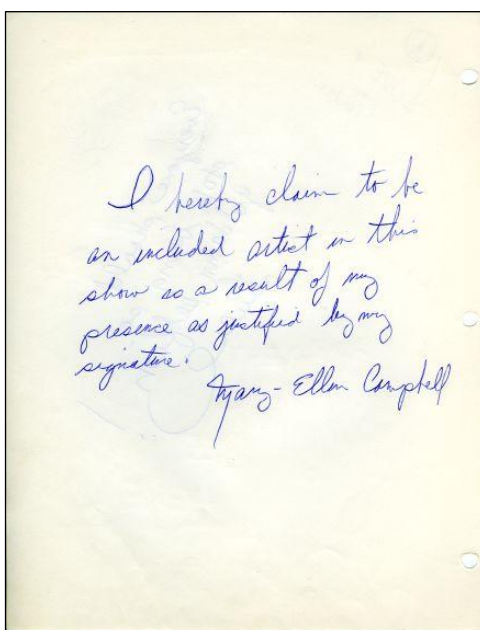 I hereby claim to be
an included artist in this
show as a result of my
presence as justified by my
signature.
Mary-Ellen Campbell